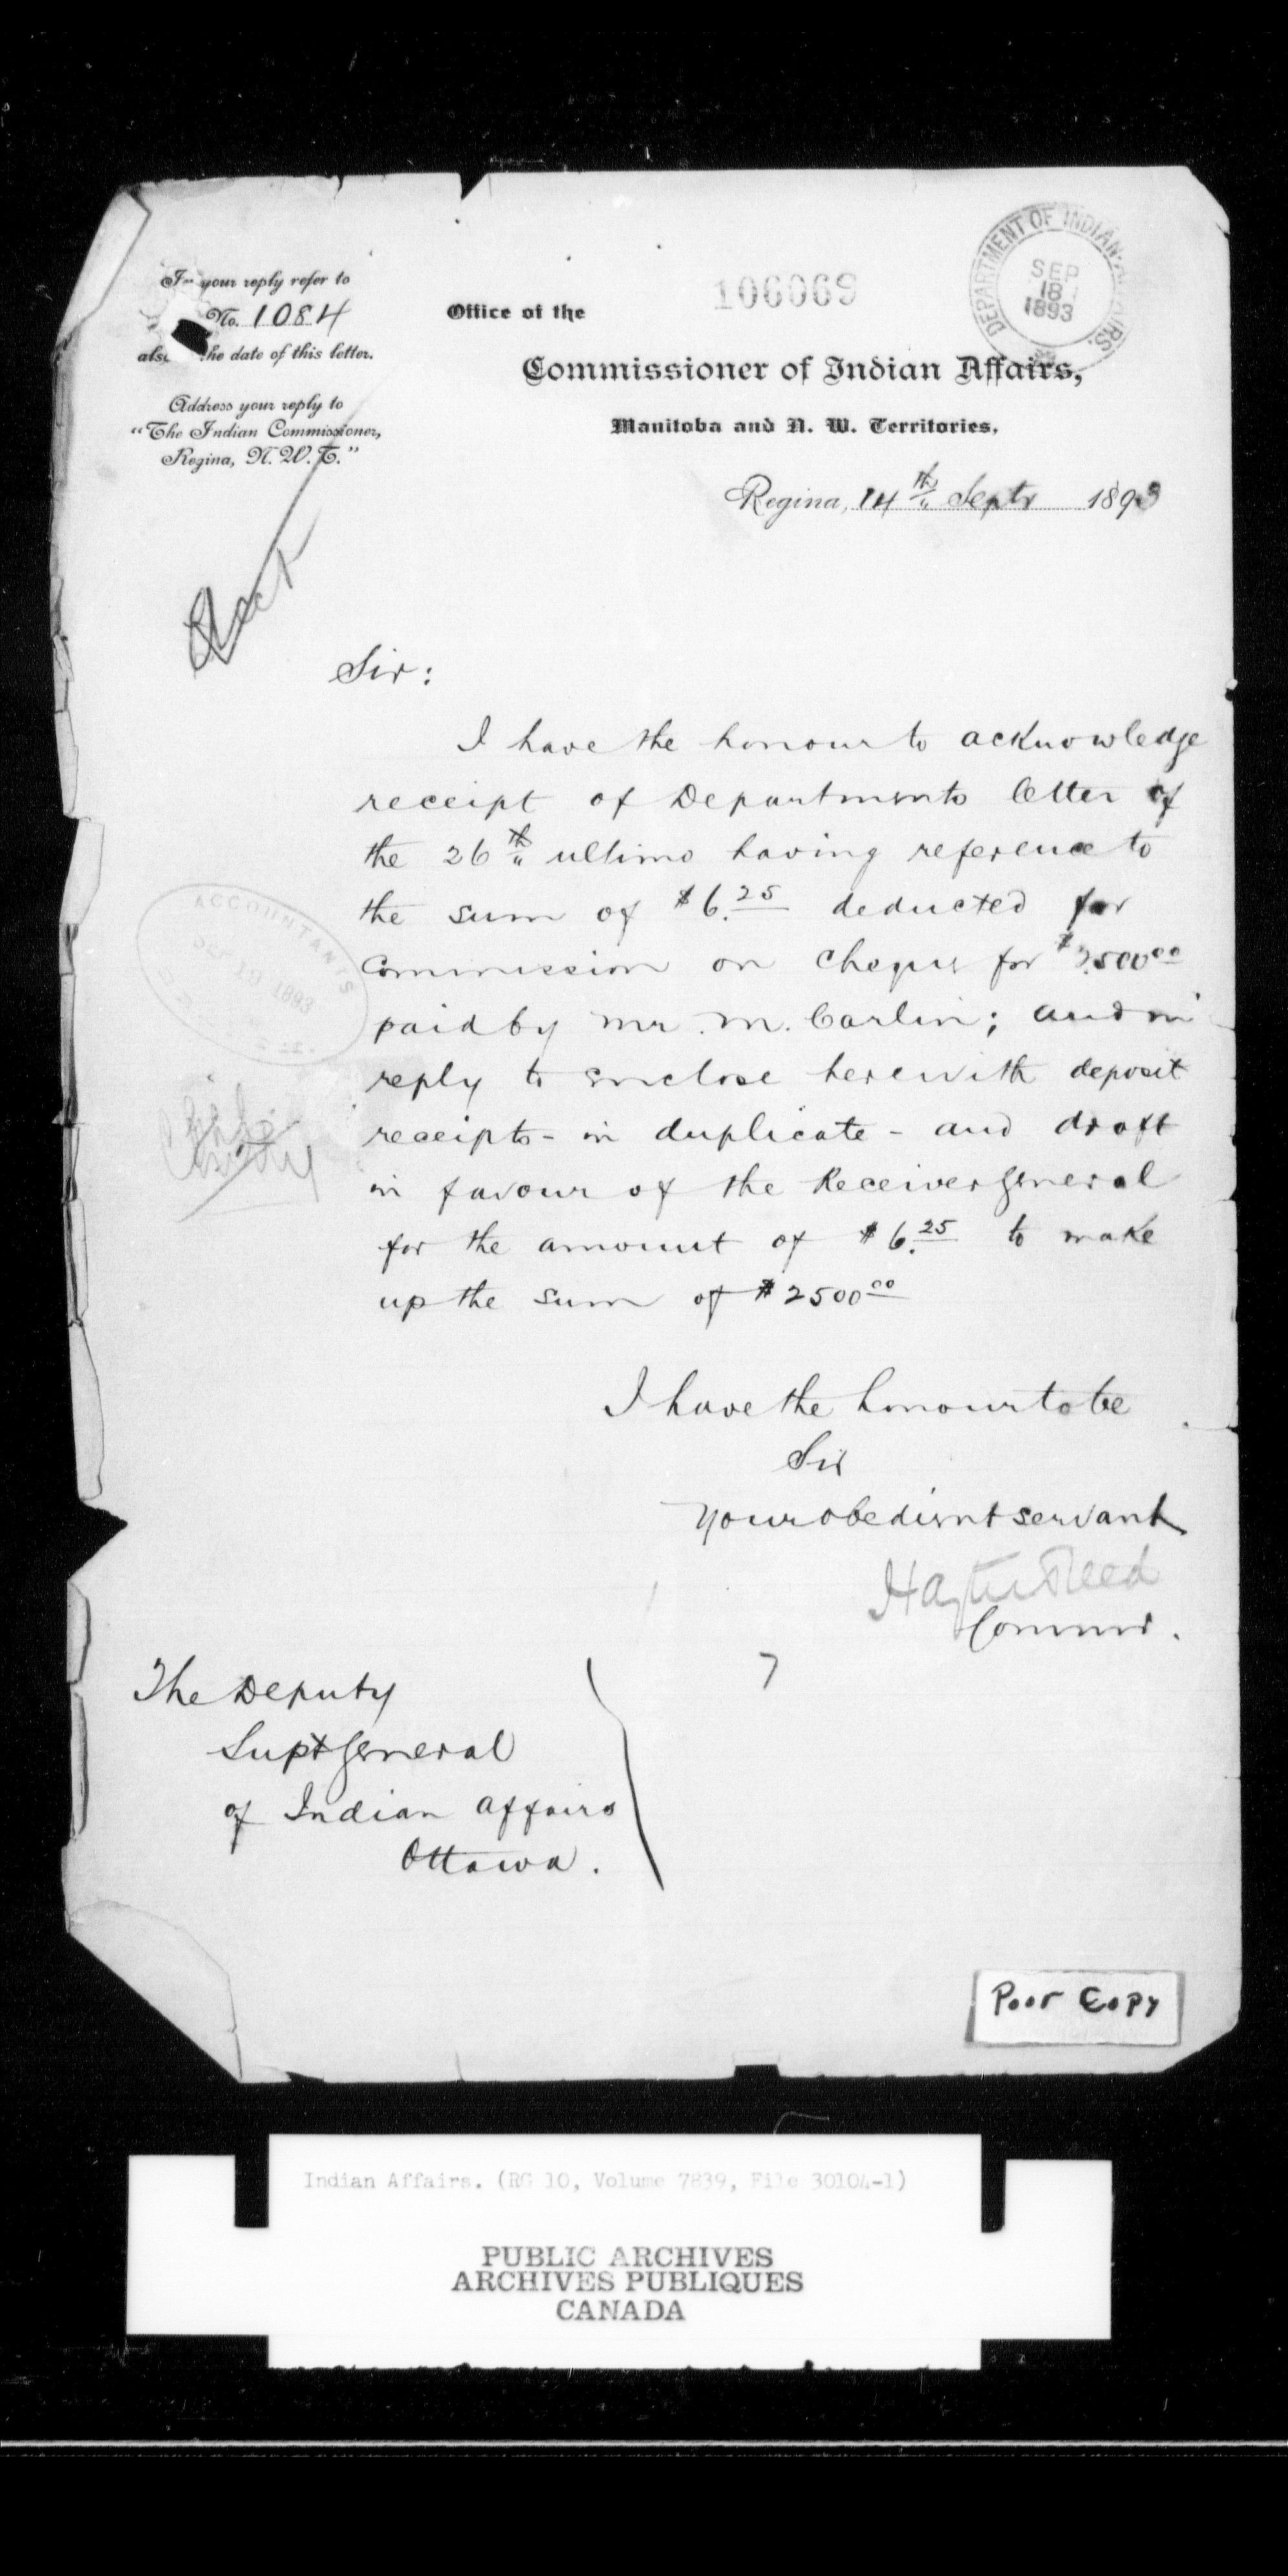 In your reply refer to
No. 1084
also the date of this letter.
Address your reply to
"The Indian Commissioner,
Regina, N. W. T."
106069
DEPARTMENT OF INDIAN AFFAIRS.
SEP
18
1893
Office of the
Commissioner of Indian Affairs,
Manitoba and N. W. Territories.
Regina, 14th Septr 1893
Sir:
I have the honour to acknowledge
receipt of Departments letter of
the 26th ultimo having reference to
the sum of $6.25 deducted for
Commission on cheque for $2500.00
paid by Mr. M. Carlin; and in
reply to enclose herewith deposit
receipts - in duplicate - and draft
in favour of the Receiver General
for the amount of $6.25 to make
up the sum of $2500.00
ACCOUNTANTS
SEP 19 1893
I have the honour to be
Sir
Your obedient servant
Hayter Reed
Commr.
7
The Deputy
Supt General
of Indian Affairs
Ottawa.
Poor Copy
Indian Affairs. (RG 10, Volume 7839, File 30104-1)
PUBLIC ARCHIVES
ARCHIVES PUBLIQUES
CANADA